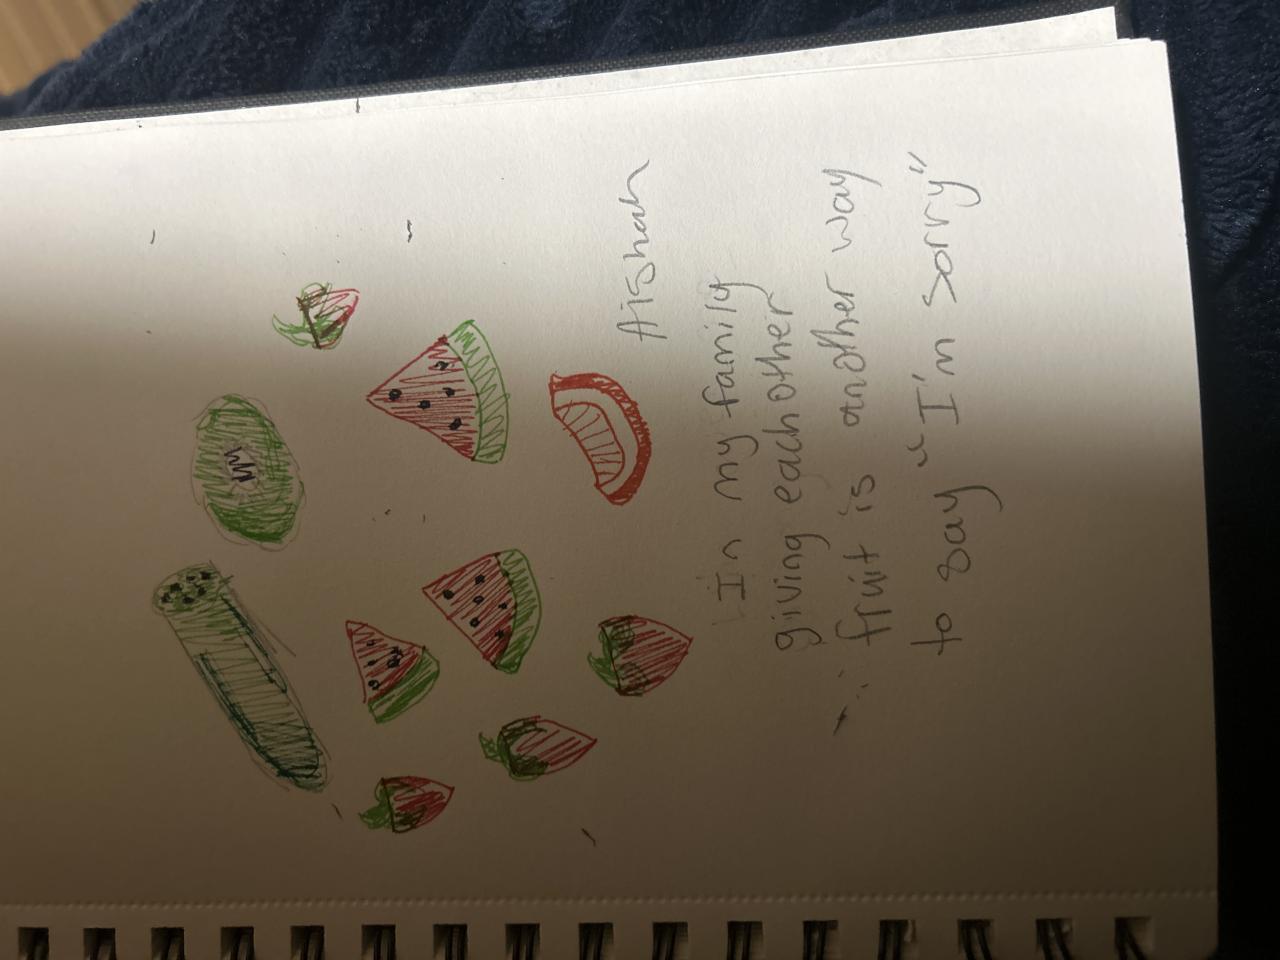 Aishah
In my family
giving each other
fruit is another way
to say "I'm sorry"